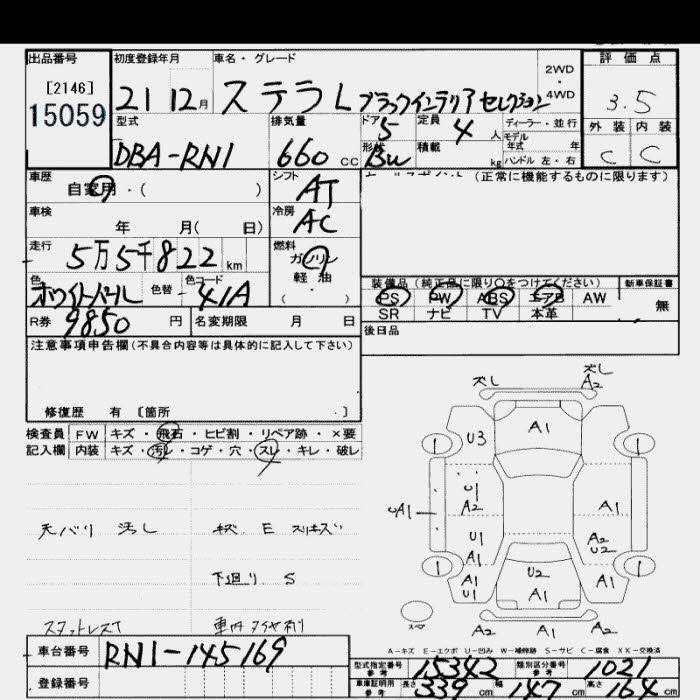 出品番号 初度登録年月 車名・グレード 評価点
[2146]
15059
21 12月 ステラL ブラックインテリア セレクション 2WD・4WD 3.5
型式 排気量 ドア 定員 ディーラー・並行 外装 内装
DBA-RN1 660 CC 5 4人 モデル年式 年 C C
形状 積載 kg ハンドル 左・右
車歴 シフト (正常に機能するものに限ります)
自家用・( ) AT
車検 冷房
年 月( 日) AC
走行 燃料
5万5千822 km ガソリン
軽油
色 色替 色コード 装備品(純正品に限り〇をつけてください) 新車保証書
41A ( ) PS PW ABS エアB AW 無
SR ナビ TV 本革
R券 9850 円 名変期限 月 日 後日品
注意事項申告欄(不具合内容等は具体的に記入して下さい)
修復歴 有 〔箇所 .〕
検査員 FW キズ・飛石・ヒビ割・リペア跡・×要
記入欄 内装 キズ・汚レ・コゲ・穴・スレ・キレ・破レ
天バリ 汚し
下廻り S
ズレ ズレ A2
A1
U3
1 1
U1
A2 A1
UA1
U1 A2
U2
A1
1 1
A1 U2 A1
U1 A1
スペア A2 A1 A2
A-キズ E-エクボ U-凹み W-補修跡 S-サビ C-腐食 XX-交換済
車台番号 RN1-145169
登録番号
型式指定番号 参考 15342 類別区分番号 参考 1021
車庫証明用 参考 長さ 339 cm 幅 147 cm 高さ 164 cm